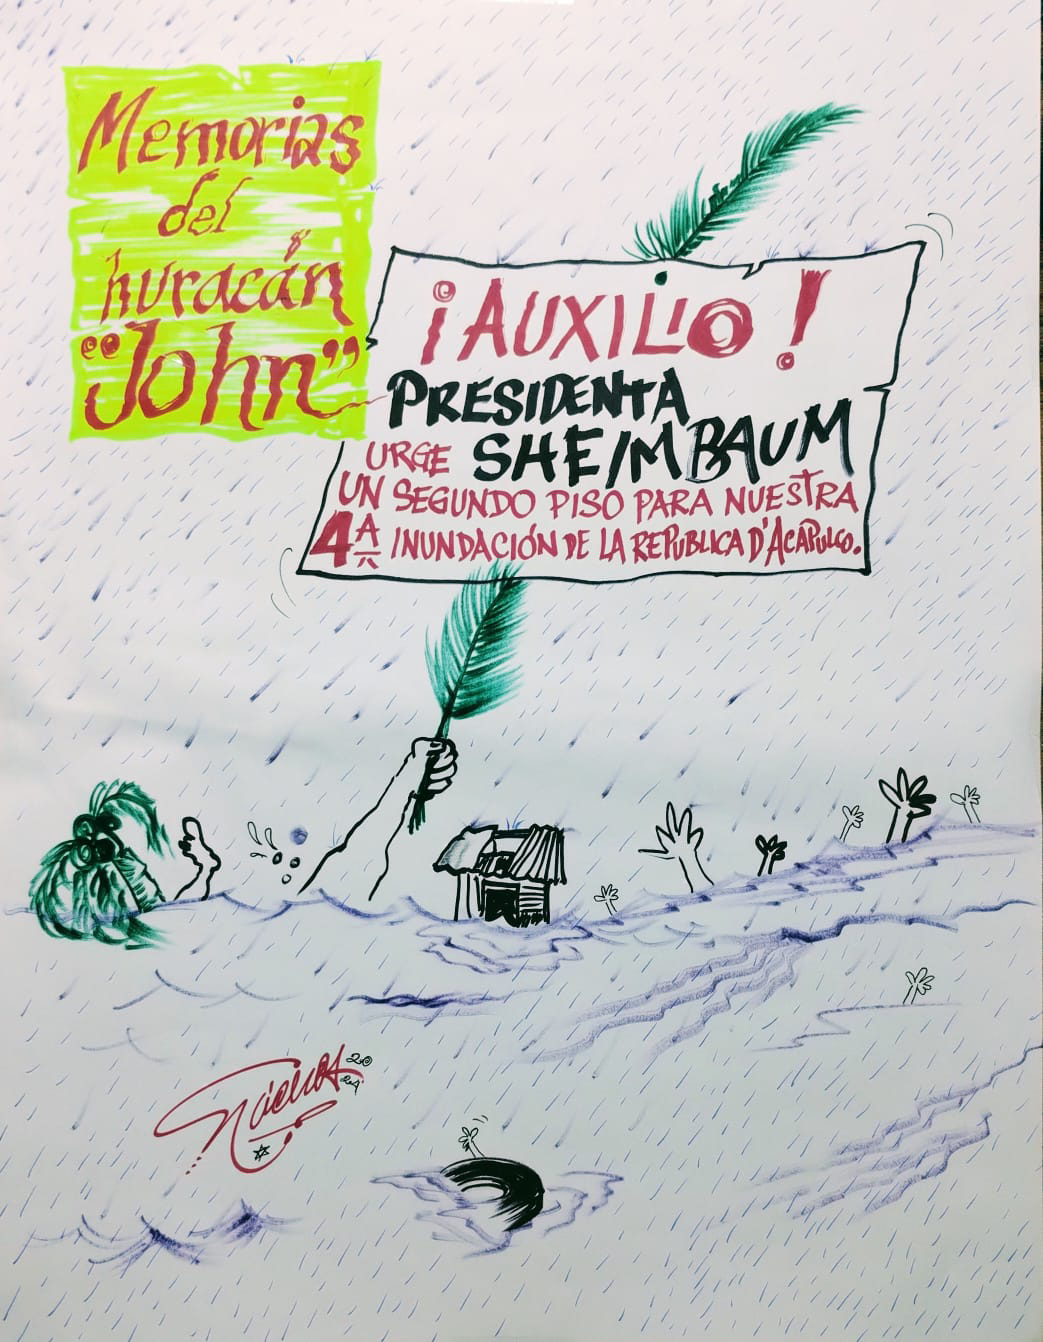 Memorias
del
huracán
"John"
¡AUXILIO!
PRESIDENTA
URGE SHEINBAUM
UN SEGUNDO PISO PARA NUESTRA
4A INUNDACIÓN DE LA REPUBLICA D'ACAPULCO.
2024